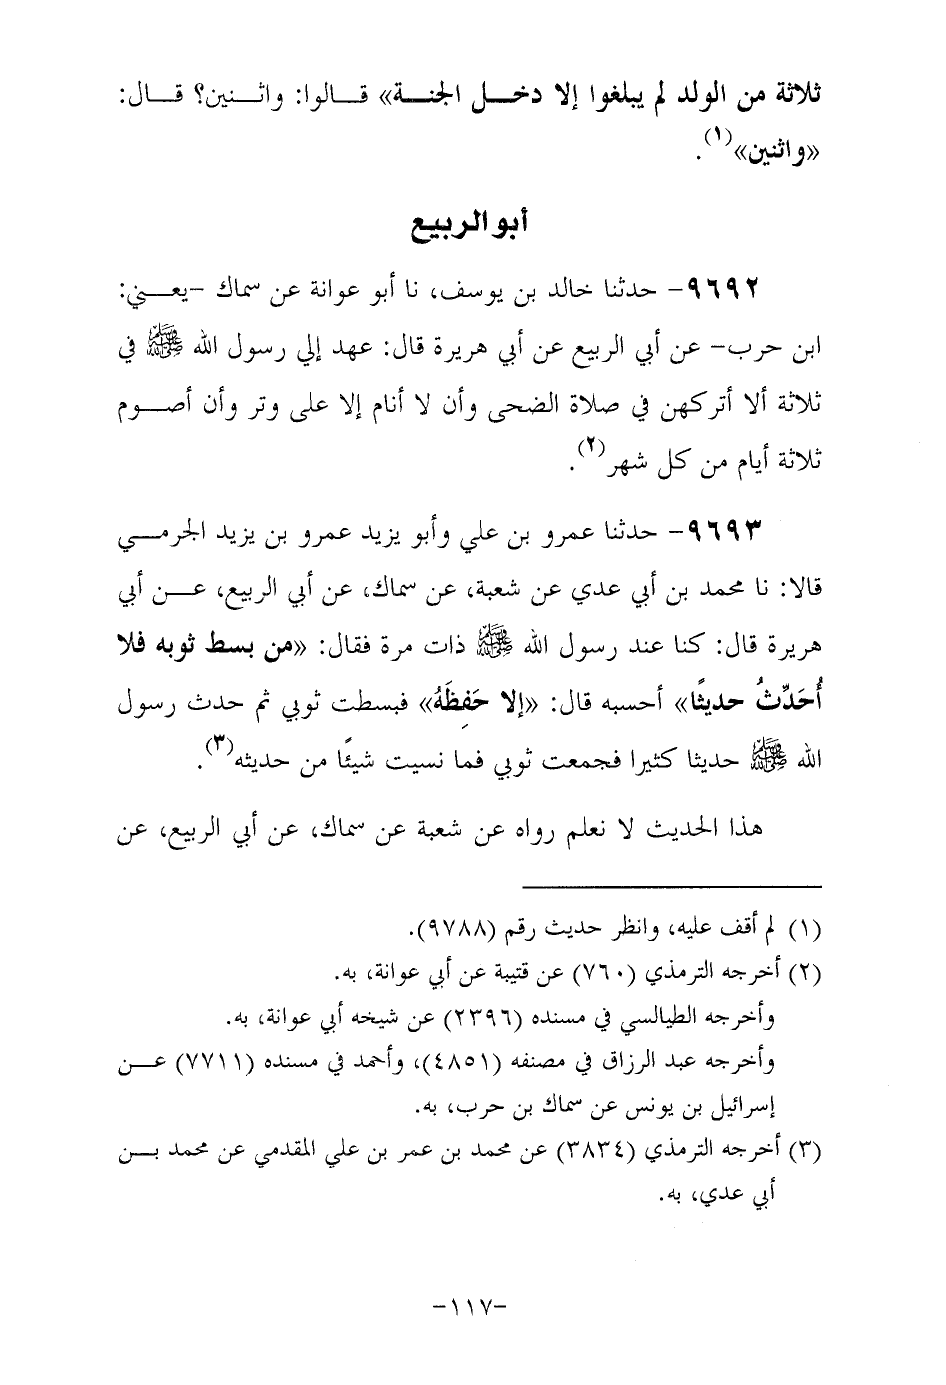 ثلاثة من الولد لم يبلغوا إلا دخــل الجنــة» قــالوا: واثــنين؟ قــال:
«واثنين»(١).
أبو الربيع
٩٦٩٢- حدثنا خالد بن يوسف، نا أبو عوانة عن سماك -يعــني:
ابن حرب- عن أبي الربيع عن أبي هريرة قال: عهد إلي رسول الله ﷺ في
ثلاثة ألا أتركهن في صلاة الضحى وأن لا أنام إلا على وتر وأن أصــوم
ثلاثة أيام من كل شهر(٢).
٩٦٩٣- حدثنا عمرو بن علي وأبو يزيد عمرو بن يزيد الجرمــي
قالا: نا محمد بن أبي عدي عن شعبة، عن سماك، عن أبي الربيع، عــن أبي
هريرة قال: كنا عند رسول الله ﷺ ذات مرة فقال: «من بسط ثوبه فلا
أُحَدِّثُ حديثًا» أحسبه قال: «إلا حَفِظَهُ» فبسطت ثوبي ثم حدث رسول
الله ﷺ حديثا كثيرا فجمعت ثوبي فما نسيت شيئًا من حديثه(٣).
هذا الحديث لا نعلم رواه عن شعبة عن سماك، عن أبي الربيع، عن
(١) لم أقف عليه، وانظر حديث رقم (٩٧٨٨).
(٢) أخرجه الترمذي (٧٦٠) عن قتيبة عن أبي عوانة، به.
وأخرجه الطيالسي في مسنده (٢٣٩٦) عن شيخه أبي عوانة، به.
وأخرجه عبد الرزاق في مصنفه (٤٨٥١)، وأحمد في مسنده (٧٧١١) عــن
إسرائيل بن يونس عن سماك بن حرب، به.
(٣) أخرجه الترمذي (٣٨٣٤) عن محمد بن عمر بن علي المقدمي عن محمد بــن
أبي عدي، به.
-١١٧-